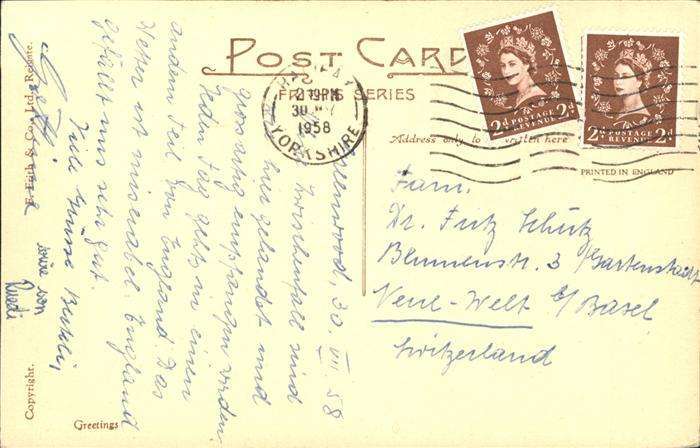 POST CARD
FRITHS SERIES
Address only to be written here
PRINTED IN ENGLAND
2 19 PM
30
1958
YORKSHIRE
2d POSTAGE REVENUE 2d
2d POSTAGE REVENUE 2d
Fam.
Dr. Fritz Schütz
Blumenstr. 3 /Gartenstadt
Neue-Welt b/Basel
Switzerland
30. VII 58
Zwischenfall sind
hier gelandet und
grossartig empfangen worden.
Jeden Tag gehts in einen
andern Teil von England Das
Wetter ist miserabel. England
gefällt uns sehr gut.
Viele Grüsse
sowie von
Ruedi
Copyright.
F. Frith & Co., Ltd., Reigate.
Greetings